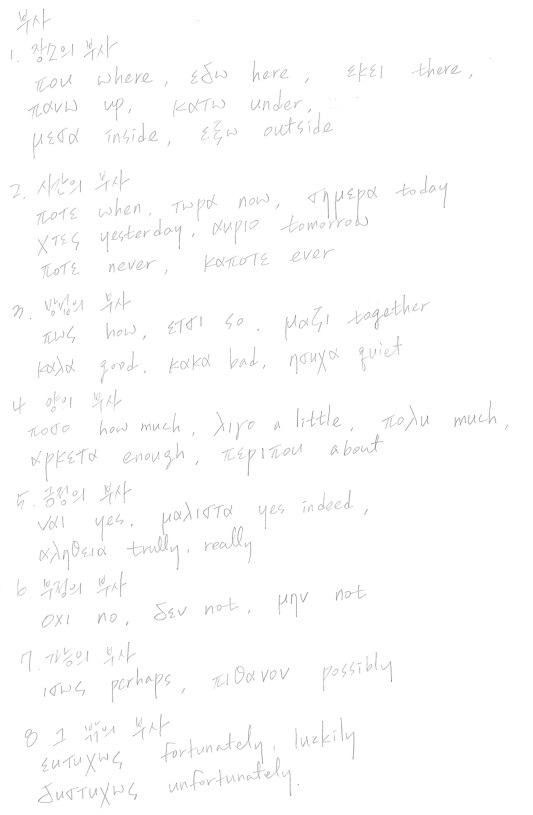 부사
1. 장소의 부사
που where, εδω here, εκει there,
πανω up, κατω under,
μεσα inside, εξω outside
2. 시간의 부사
ποτε when, τωρα now, σημερα today
χτες yesterday, αυριο tomorrow
ποτε never, καποτε ever
3. 방법의 부사
πως how, ετσι so, μαζι together
καλα good, κακα bad, ησυχα quiet
4 양의 부사
ποσο how much, λιγο a little, πολυ much,
αρκετα enough, περιπου about
5. 긍정의 부사
ναι yes, μαλιστα yes indeed,
αληθεια trully, really
6 부정의 부사
οχι no, δεν not, μην not
7. 가능의 부사
ισως perhaps, πιθανον possibly
8 그 밖의 부사
ευτυχως fortunately, luzkily
δυστυχως unfortunately.